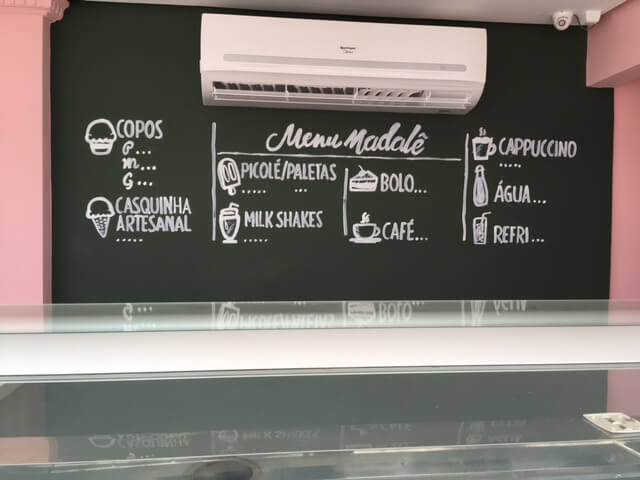 Menu Madalê
COPOS
P...
M...
G...
CASQUINHA
ARTESANAL
.....
PICOLÉ/PALETAS
.....
MILK SHAKES
.....
BOLO...
CAFÉ...
CAPPUCCINO
.....
ÁGUA...
REFRI...